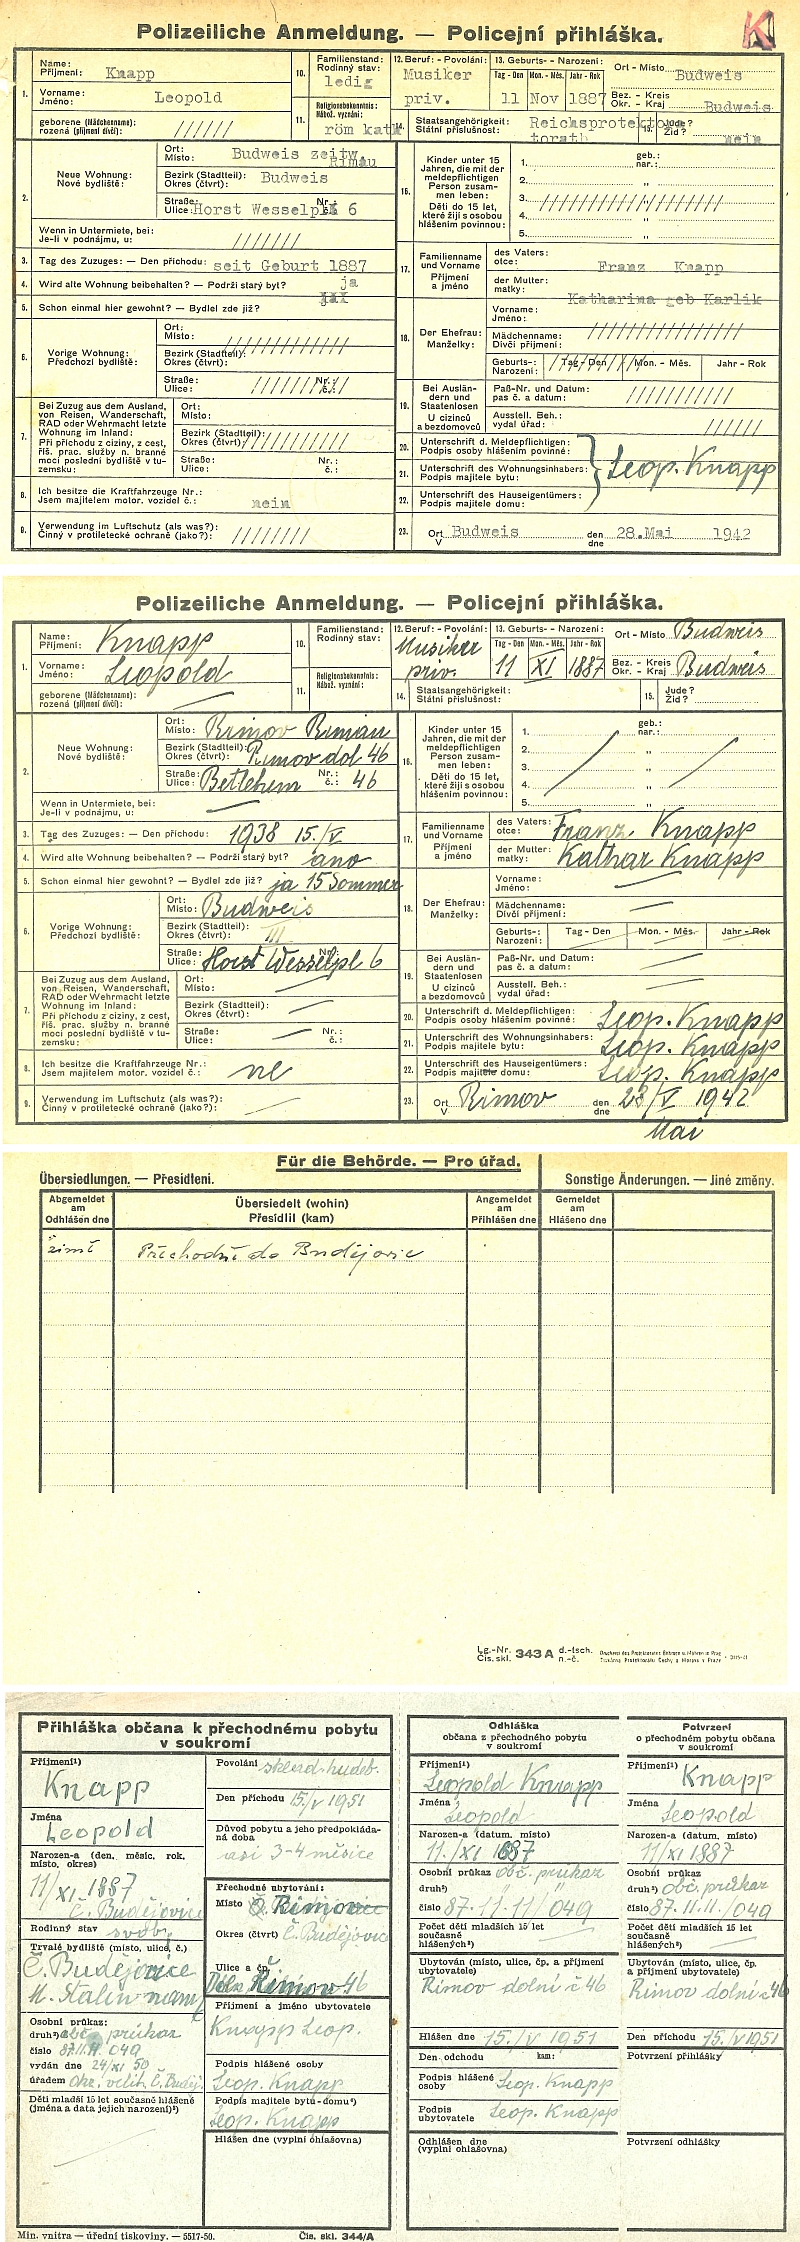 K
Polizeiliche Anmeldung. — Policejní přihláška.
1.
Name:
Příjmení: Knapp
Vorname:
Jméno: Leopold
geborene (Mädchenname):
rozená (příjmení dívčí): //////
10.
Familienstand:
Rodinný stav:
ledig
11.
Religionsbekenntnis:
Nábož. vyznání:
röm kath
12. Beruf: - Povolání:
Musiker
priv.
13. Geburts- - Narození:
Tag - Den Mon. - Měs. Jahr - Rok
11 Nov 1887
Ort - Místo Budweis
Bez. - Kreis
Okr. - Kraj Budweis
14.
Staatsangehörigkeit:
Státní příslušnost:
Reichsprotektorath
15. Jude?
Žid?
nein
2.
Neue Wohnung:
Nové bydliště:
Ort:
Místo: Budweis zeitw.
Rimau
Bezirk (Stadtteil):
Okres (čtvrt): Budweis
Straße: Nr.:
Ulice: Horst Wesselpl č.: 6
Wenn in Untermiete, bei:
Je-li v podnájmu, u: ///////
3. Tag des Zuzuges: — Den příchodu: seit Geburt 1887
4. Wird alte Wohnung beibehalten? — Podrží starý byt? ja
5. Schon einmal hier gewohnt? — Bydlel zde již?
6.
Vorige Wohnung:
Předchozí bydliště:
Ort:
Místo:
Bezirk (Stadtteil):
Okres (čtvrt):
Straße: Nr.:
Ulice: č.:
7.
Bei Zuzug aus dem Ausland,
von Reisen, Wanderschaft,
RAD oder Wehrmacht letzte
Wohnung im Inland:
Při příchodu z ciziny, z cest,
říš. prac. služby n. branné
moci poslední bydliště v tu-
zemsku:
Ort:
Místo:
Bezirk (Stadtteil):
Okres (čtvrt):
Straße: Nr.:
Ulice: č.:
8.
Ich besitze die Kraftfahrzeuge Nr.:
Jsem majitelem motor. vozidel č.: nein
9.
Verwendung im Luftschutz (als was?):
Činný v protiletecké ochraně (jako?): ////////
16.
Kinder unter 15
Jahren, die mit der
meldepflichtigen
Person zusam-
men leben:
Děti do 15 let,
které žijí s osobou
hlášením povinnou:
geb.:
nar.:
1.
2. „
3. „
4. „
5. „
17.
Familienname
und Vorname
Příjmení
a jméno
des Vaters:
otce: Franz Knapp
der Mutter:
matky: Katharina geb Karlik
18.
Der Ehefrau:
Manželky:
Vorname:
Jméno:
Mädchenname:
Dívčí příjmení:
Geburts-:
Narození: Tag - Den Mon. - Měs. Jahr - Rok
19.
Bei Auslän-
dern und
Staatenlosen
U cizinců
a bezdomovců
Paß-Nr. und Datum:
pas č. a datum:
Ausstell. Beh.:
vydal úřad:
20. Unterschrift d. Meldepflichtigen:
Podpis osoby hlášením povinné:
21. Unterschrift des Wohnungsinhabers:
Podpis majitele bytu:
22. Unterschrift des Hauseigentümers:
Podpis majitele domu:
Leop. Knapp
23. Ort
V Budweis den
dne 28.Mai 1942
Polizeiliche Anmeldung. — Policejní přihláška.
1.
Name:
Příjmení: Knapp
Vorname:
Jméno: Leopold
geborene (Mädchenname):
rozená (příjmení dívčí):
10.
Familienstand:
Rodinný stav:
11.
Religionsbekenntnis:
Nábož. vyznání:
12. Beruf: - Povolání:
Musiker
priv.
13. Geburts- - Narození:
Tag - Den Mon. - Měs. Jahr - Rok
11 XI 1887
Ort - Místo Budweis
Bez. - Kreis
Okr. - Kraj Budweis
14.
Staatsangehörigkeit:
Státní příslušnost:
15. Jude?
Žid?
2.
Neue Wohnung:
Nové bydliště:
Ort:
Místo: Rimov Rimau
Bezirk (Stadtteil):
Okres (čtvrt): Rimov dol 46
Straße: Nr.:
Ulice: Betlehem č.: 46
Wenn in Untermiete, bei:
Je-li v podnájmu, u:
3. Tag des Zuzuges: — Den příchodu: 1938 15./V
4. Wird alte Wohnung beibehalten? — Podrží starý byt? ano
5. Schon einmal hier gewohnt? — Bydlel zde již? ja 15 Sommer
6.
Vorige Wohnung:
Předchozí bydliště:
Ort:
Místo: Budweis
Bezirk (Stadtteil):
Okres (čtvrt): III
Straße: Nr.:
Ulice: Horst Wesselpl 6
7.
Bei Zuzug aus dem Ausland,
von Reisen, Wanderschaft,
RAD oder Wehrmacht letzte
Wohnung im Inland:
Při příchodu z ciziny, z cest,
říš. prac. služby n. branné
moci poslední bydliště v tu-
zemsku:
Ort:
Místo:
Bezirk (Stadtteil):
Okres (čtvrt):
Straße: Nr.:
Ulice: č.:
8.
Ich besitze die Kraftfahrzeuge Nr.:
Jsem majitelem motor. vozidel č.: ne
9.
Verwendung im Luftschutz (als was?):
Činný v protiletecké ochraně (jako?):
16.
Kinder unter 15
Jahren, die mit der
meldepflichtigen
Person zusam-
men leben:
Děti do 15 let,
které žijí s osobou
hlášením povinnou:
geb.:
nar.:
1.
2. „
3. „
4. „
5. „
17.
Familienname
und Vorname
Příjmení
a jméno
des Vaters:
otce: Franz Knapp
der Mutter:
matky: Kathar Knapp
18.
Der Ehefrau:
Manželky:
Vorname:
Jméno:
Mädchenname:
Dívčí příjmení:
Geburts-:
Narození: Tag - Den Mon. - Měs. Jahr - Rok
19.
Bei Auslän-
dern und
Staatenlosen
U cizinců
a bezdomovců
Paß-Nr. und Datum:
pas č. a datum:
Ausstell. Beh.:
vydal úřad:
20. Unterschrift d. Meldepflichtigen:
Podpis osoby hlášením povinné: Leop. Knapp
21. Unterschrift des Wohnungsinhabers:
Podpis majitele bytu: Leop. Knapp
22. Unterschrift des Hauseigentümers:
Podpis majitele domu: Leop. Knapp
23. Ort
V Rimov den
dne 28/V 1942
Mai
Für die Behörde. — Pro úřad.
Übersiedlungen. — Přesídlení.
Sonstige Änderungen. — Jiné změny.
Abgemeldet
am
Odhlášen dne
Übersiedelt (wohin)
Přesídlil (kam)
Angemeldet
am
Přihlášen dne
Gemeldet
am
Hlášeno dne
zimě Přechodně do Budějovic
Lg.-Nr.
Čís. skl. 343 A d.-tsch.
n.-č.
Druckerei des Protektorates Böhmen u. Mähren in Prag
Tiskárna Protektorátu Čechy a Morava v Praze
Přihláška občana k přechodnému pobytu
v soukromí
Příjmení¹)
Knapp
Jména
Leopold
Narozen-a (den, měsíc, rok,
místo, okres)
11/XI 1887
Č. Budějovice
Rodinný stav svob.
Trvalé bydliště (místo, ulice, č.)
Č. Budějovice
N. Stalin nám
Osobní průkaz:
druh²) obč. průkaz
číslo 87.11.11. 049
vydán dne 24/XI 50
úřadem Okr. velit. Č. Buděj.
Děti mladší 15 let současně hlášené
(jména a data jejich narození³)
Povolání sklad. hudeb.
Den příchodu 15/V 1951
Důvod pobytu a jeho předpokláda-
ná doba
asi 3-4 měsíce
Přechodné ubytování:
Místo Rimovice
Okres (čtvrt) Č. Budějovice
Ulice a čp.
Dolní Římov 46
Příjmení a jméno ubytovatele
Knapp Leop.
Podpis hlášené osoby
Leop. Knapp
Podpis majitele bytu-domu⁴)
Leop. Knapp
Hlášen dne (vyplní ohlašovna)
Min. vnitra — úřední tiskoviny. — 5517-50.
Čís. skl. 344/A
Odhláška
občana z přechodného pobytu
v soukromí
Příjmení¹)
Leopold Knapp
Jména
Leopold
Narozen-a (datum, místo)
11./XI 1887
Osobní průkaz obč. průkaz
druh²)
číslo 87.11.11/049
Počet dětí mladších 15 let
současně
hlášených³)
Ubytován (místo, ulice, čp. a příjmení
ubytovatele)
Rimov dolní č 46
Hlášen dne 15./V 1951
Den odchodu kam:
Podpis hlášené
osoby Leop. Knapp
Podpis
ubytovatele Leop. Knapp
Odhlášen dne
(vyplní ohlašovna)
Potvrzení
o přechodném pobytu občana
v soukromí
Příjmení¹)
Knapp
Jména
Leopold
Narozen-a (datum, místo)
11/XI 1887
Osobní průkaz
druh²) obč. průkaz
číslo 87.11.11./049
Počet dětí mladších 15 let
současně
hlášených³)
Ubytován (místo, ulice, čp.
a příjmení ubytovatele)
Rimov dolní č 46
Den příchodu 15./V 1951
Potvrzení přihlášky
Potvrzení odhlášky